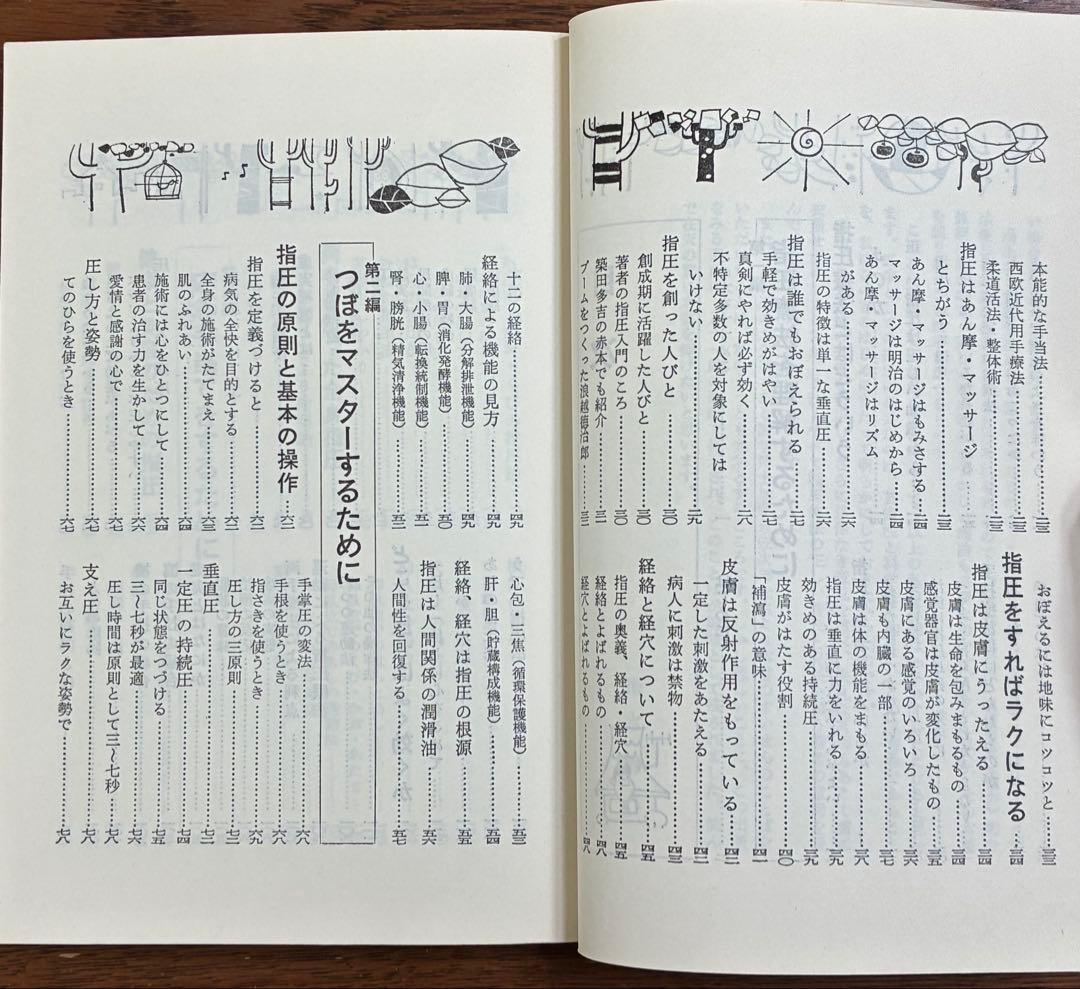 本能的な手当法……二三
西欧近代用手療法……二三
柔道活法・整体術……二三
指圧はあん摩・マッサージ
とちがう……二三
あん摩・マッサージはもみさする……二四
マッサージは明治のはじめから……二四
あん摩・マッサージはリズム
がある……二六
指圧の特徴は単一な垂直圧……二六
指圧は誰でもおぼえられる……二七
手軽で効きめがはやい……二七
真剣にやれば必ず効く……二八
不特定多数の人を対象にしては
いけない……二九
指圧を創った人びと……三〇
創成期に活躍した人びと……三〇
著者の指圧入門のころ……三〇
築田多吉の赤本でも紹介……
ブームをつくった浪越徳治郎……
おぼえるには地味にコツコツと……三三
指圧をすればラクになる……三四
指圧は皮膚にうったえる……三四
皮膚は生命を包みまもるもの……三四
感覚器官は皮膚が変化したもの……三五
皮膚にある感覚のいろいろ……三六
皮膚も内臓の一部……三七
皮膚は体の機能をまもる……三八
指圧は垂直に力をいれる……三九
効きめのある持続圧……三九
皮膚がはたす役割……四〇
「補瀉」の意味……四一
皮膚は反射作用をもっている……四二
一定した刺激をあたえる……四二
病人に刺激は禁物……四三
経絡と経穴について……四五
指圧の奥義、経絡・経穴……四五
経絡とよばれるもの……四八
経穴とよばれるもの……四八
十二の経絡……四九
経絡による機能の見方……四九
肺・大腸(分解排泄機能)……四九
脾・胃(消化発酵機能)……五〇
心・小腸(転換統制機能)……五一
腎・膀胱(精気清浄機能)……五二
心包・三焦(循環保護機能)……五三
肝・胆(貯蔵構成機能)……五四
経絡、経穴は指圧の根源……五五
指圧は人間関係の潤滑油……五六
人間性を回復する……五七
第二編
つぼをマスターするために
指圧の原則と基本の操作……六二
指圧を定義づけると……六二
病気の全快を目的とする……六二
全身の施術がたてまえ……六三
肌のふれあい……六四
施術には心をひとつにして……六四
患者の治す力を生かして……六六
愛情と感謝の心で……六六
圧し方と姿勢……六七
てのひらを使うとき……六七
手掌圧の変法……六八
手根を使うとき……六八
指さきを使うとき……六九
圧し方の三原則……七二
垂直圧……七二
一定圧の持続圧……七四
同じ状態をつづける……七五
三〜七秒が最適……七六
圧し時間は原則として三〜七秒……七八
支え圧……七八
お互いにラクな姿勢で……七八